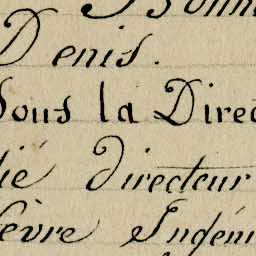 Bonn
Denis.
Sous la Direc
lié directeur
fèvre Ingéni